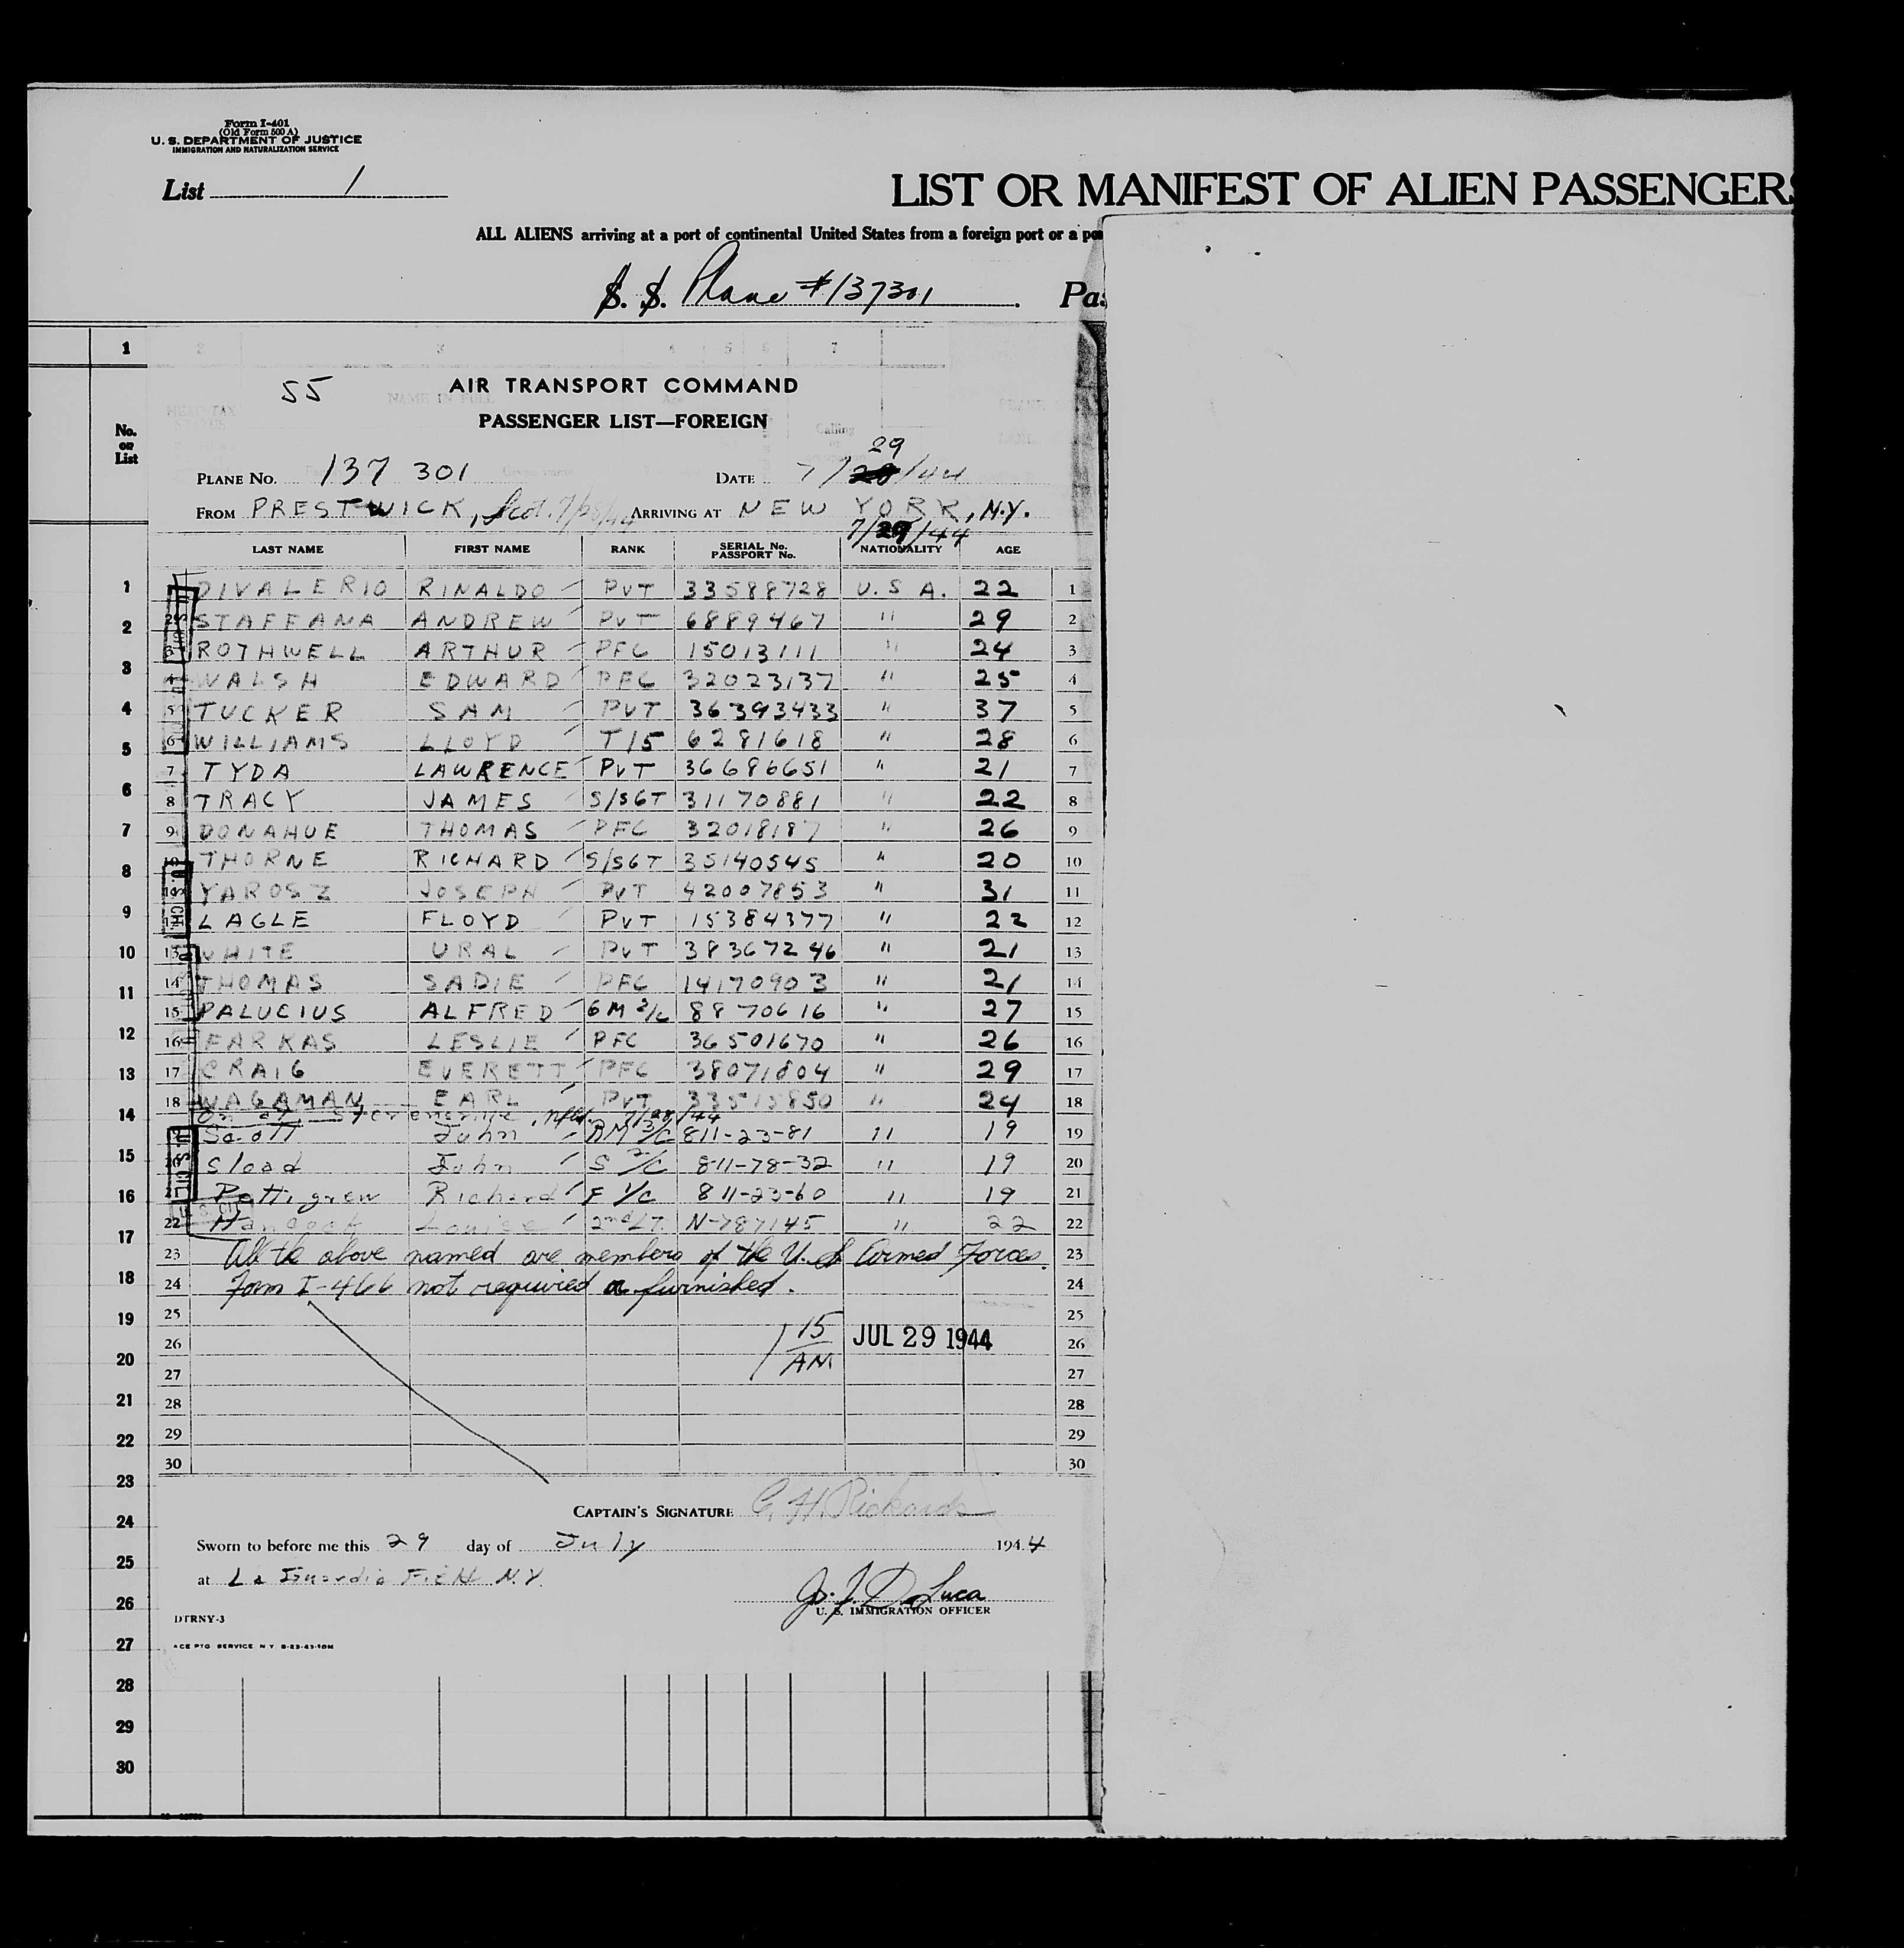 Form I-401
(Old Form 500 A)
U. S. DEPARTMENT OF JUSTICE
IMMIGRATION AND NATURALIZATION SERVICE
List 1
LIST OR MANIFEST OF ALIEN PASSENGERS
ALL ALIENS arriving at a port of continental United States from a foreign port or a
S. S. Plane #137301 . Pas
1 2 3 4 5 6 7
55 AIR TRANSPORT COMMAND
PASSENGER LIST—FOREIGN
No. on List
29
PLANE No. 137 301 DATE 7/28/44
FROM PRESTWICK, Scot. 7/28/44 ARRIVING AT NEW YORK, N.Y.
7/29/44
LAST NAME FIRST NAME RANK SERIAL No. PASSPORT No. NATIONALITY AGE
1 DIVALERIO RINALDO PVT 33588728 U.S A. 22 1
2 STAFFANA ANDREW PVT 6889467 " 29 2
3 ROTHWELL ARTHUR PFC 15013111 " 24 3
4 WALSH EDWARD PFC 32023137 " 25 4
5 TUCKER SAM PVT 36393433 " 37 5
6 WILLIAMS LLOYD T/5 6281618 " 28 6
7 TYDA LAWRENCE PVT 36686651 " 21 7
8 TRACY JAMES S/SGT 31170881 " 22 8
9 DONAHUE THOMAS PFC 32018187 " 26 9
10 THORNE RICHARD S/SGT 35140545 " 20 10
11 YAROSZ JOSEPH PVT 42007853 " 31 11
12 LAGLE FLOYD PVT 15384377 " 22 12
13 WHITE URAL PVT 38367246 " 21 13
14 THOMAS SADIE PFC 14170903 " 21 14
15 PALUCIUS ALFRED GM 3/c 8870616 " 27 15
16 FARKAS LESLIE PFC 36501670 " 26 16
17 CRAIG EVERETT PFC 38071804 " 29 17
18 WAGAMAN EARL PVT 33515850 " 24 18
Nfld. 7/28/44
19 Scott John RM 3/C 811-23-81 " 19 19
20 Sload John S 2/C 811-78-32 " 19 20
21 Pettigrew Richard F 1/C 811-23-60 " 19 21
22 Hancock Louise 2nd LT. N-787145 " 22 22
23 All the above named are members of the U.S. Armed Forces. 23
24 Form I-466 not required or furnished. 24
25 25
26 15/AN. JUL 29 1944 26
27 27
28 28
29 29
30 30
CAPTAIN'S SIGNATURE C. H. Rickards
Sworn to before me this 29 day of July 1944
at La Guardia Field N.Y.
Jo. J. DeLuca
U. S. IMMIGRATION OFFICER
DTRNY-3
ACE PTG SERVICE N Y 8-23-43-10M
1
2
3
4
5
6
7
8
9
10
11
12
13
14
15
16
17
18
19
20
21
22
23
24
25
26
27
28
29
30